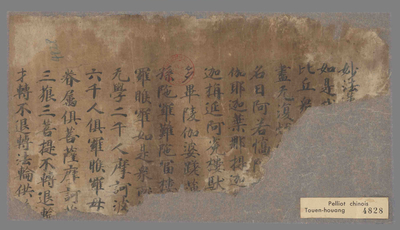 妙法
如是
比丘
盡无復
名曰阿若憍
伽耶迦葉那提迦
迦旃延阿㝹樓馱
多畢陵伽婆蹉
孫陁羅難陁富樓
羅睺羅如是衆
无學二千人摩訶波
六千人俱羅睺羅母
眷屬俱菩薩摩訶
三藐三菩提不
才轉不退轉法輪供
Pelliot chinois
Touen-houang 4828